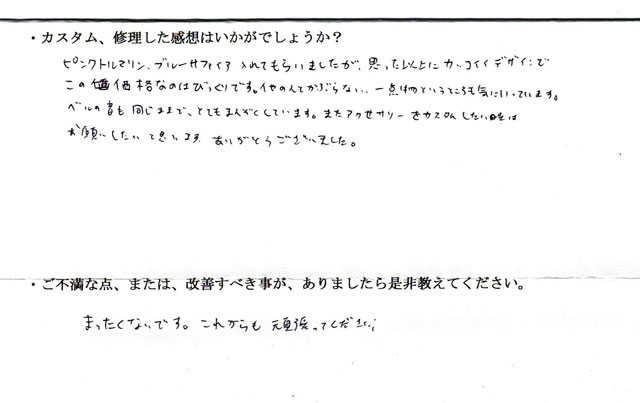 ・カスタム、修理した感想はいかがでしょうか？
ピンクトルマリン、ブルーサファイア 入れてもらいましたが、思った以上にカッコイイデザインで
この価格なのはびっくりです。他の人とかぶらない、一点物というところも気に入っています。
ベルの音も同じままで、とてもまんぞくしています。またアクセサリーをカスタムしたい時は
お願いしたいと思います。ありがとうございました。
・ご不満な点、または、改善すべき事が、ありましたら是非教えてください。
まったくないです。これからも 頑張ってください